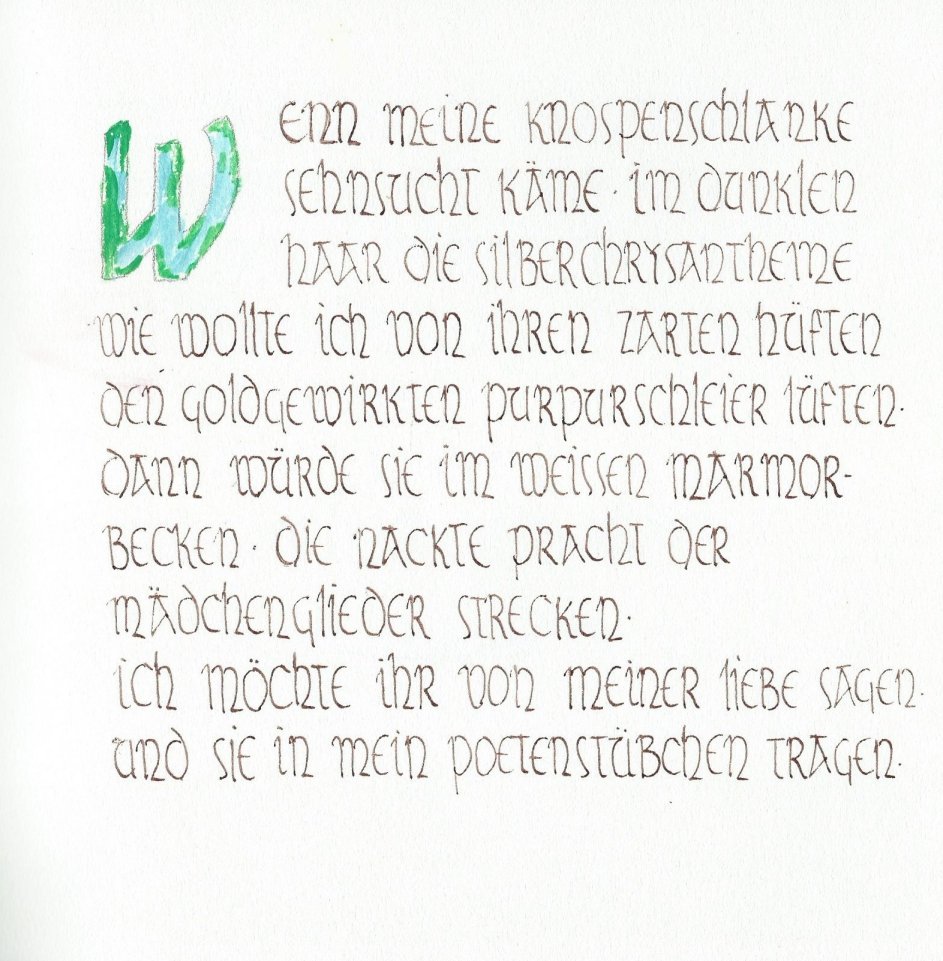 Wenn meine knospenschlanke
Sehnsucht käme · im dunklen
Haar die Silberchrysantheme
wie wollte ich von ihren zarten Hüften
den goldgewirkten Purpurschleier lüften.
Dann würde sie im weissen Marmor-
becken · die nackte Pracht der
Mädchenglieder strecken.
Ich möchte ihr von meiner Liebe sagen.
und sie in mein Poetenstübchen tragen.